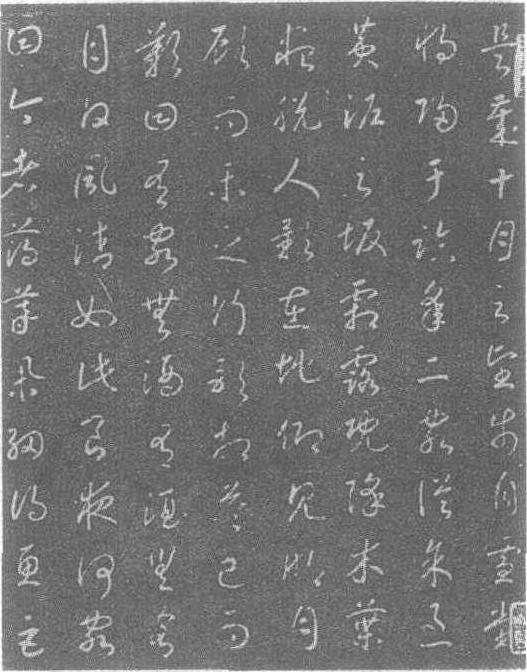 是歲十月之望步自雪堂
將歸于臨皋二客從予過
黃泥之坂霜露既降木葉
盡脫人影在地仰見明月
顧而樂之行歌相答已而
歎曰有客無酒有酒無肴
月白風清如此良夜何客
曰今者薄暮舉網得魚巨